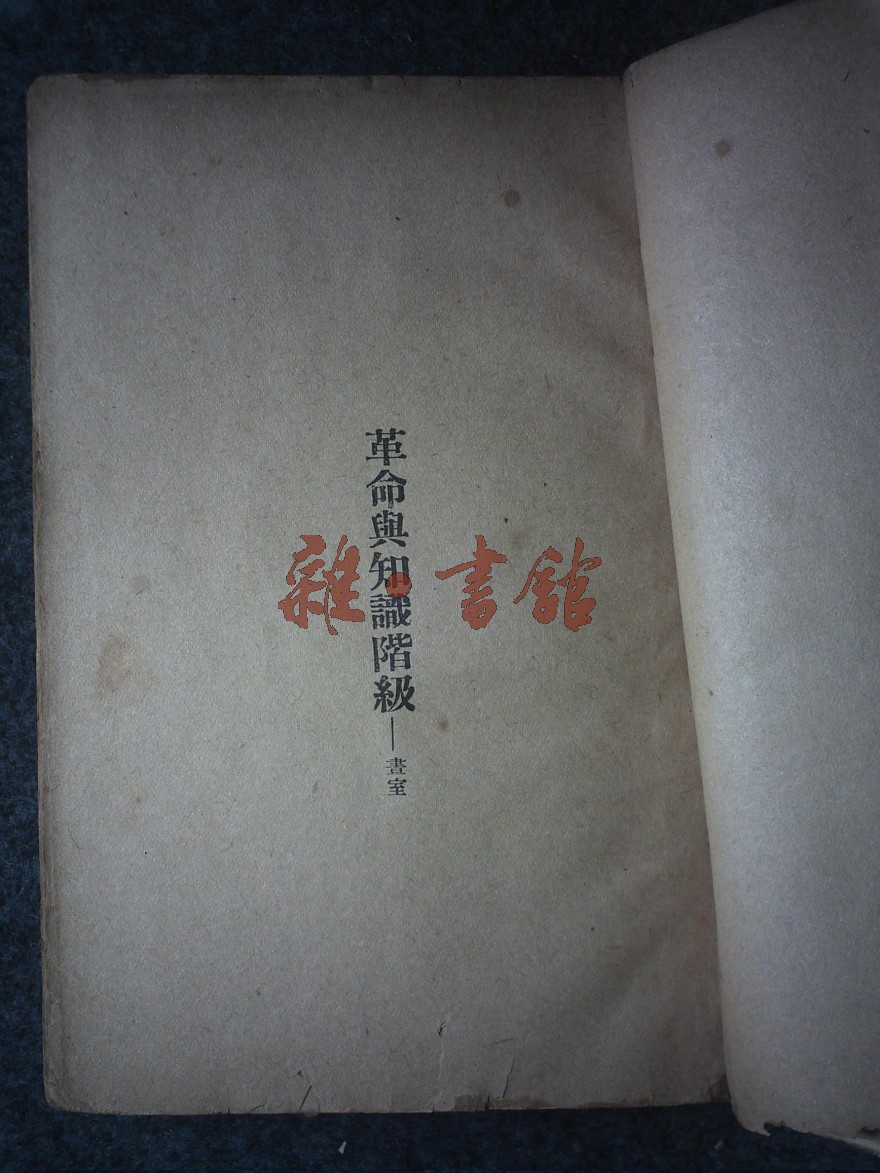 革命與知識階級——畫室
雜·書館